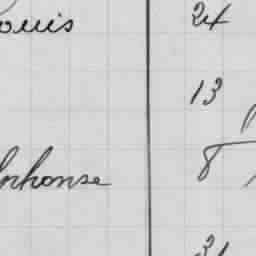 ouis 24
13
lphonse 8
31